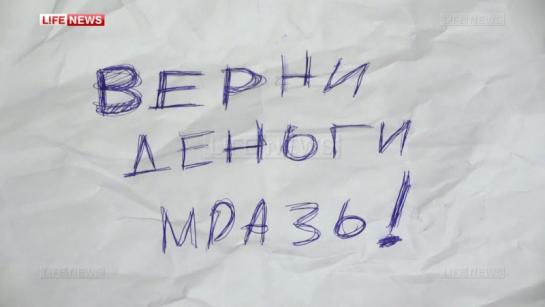 LIFE NEWS
LIFE NEWS
ВЕРНИ
ДЕНЬГИ
LIFE NEWS
МРАЗЬ!
LIFE NEWS
LIFE NEWS